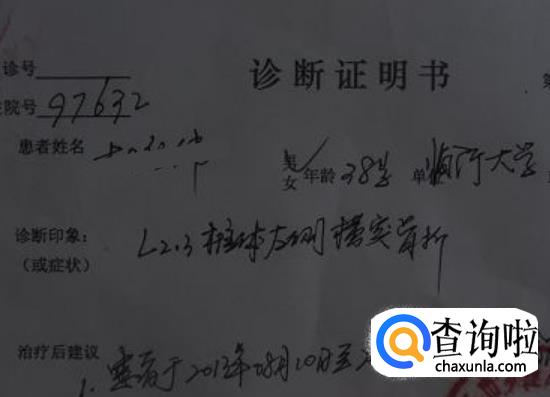 诊断证明书
诊号
院号 97632
患者姓名
男
女 年龄 38岁 单 大学
诊断印象： L2.3 椎体左侧横突骨折
（或症状）
治疗后建议
1. 患者于2012年08月10日至2
查询啦
chaxunla.com